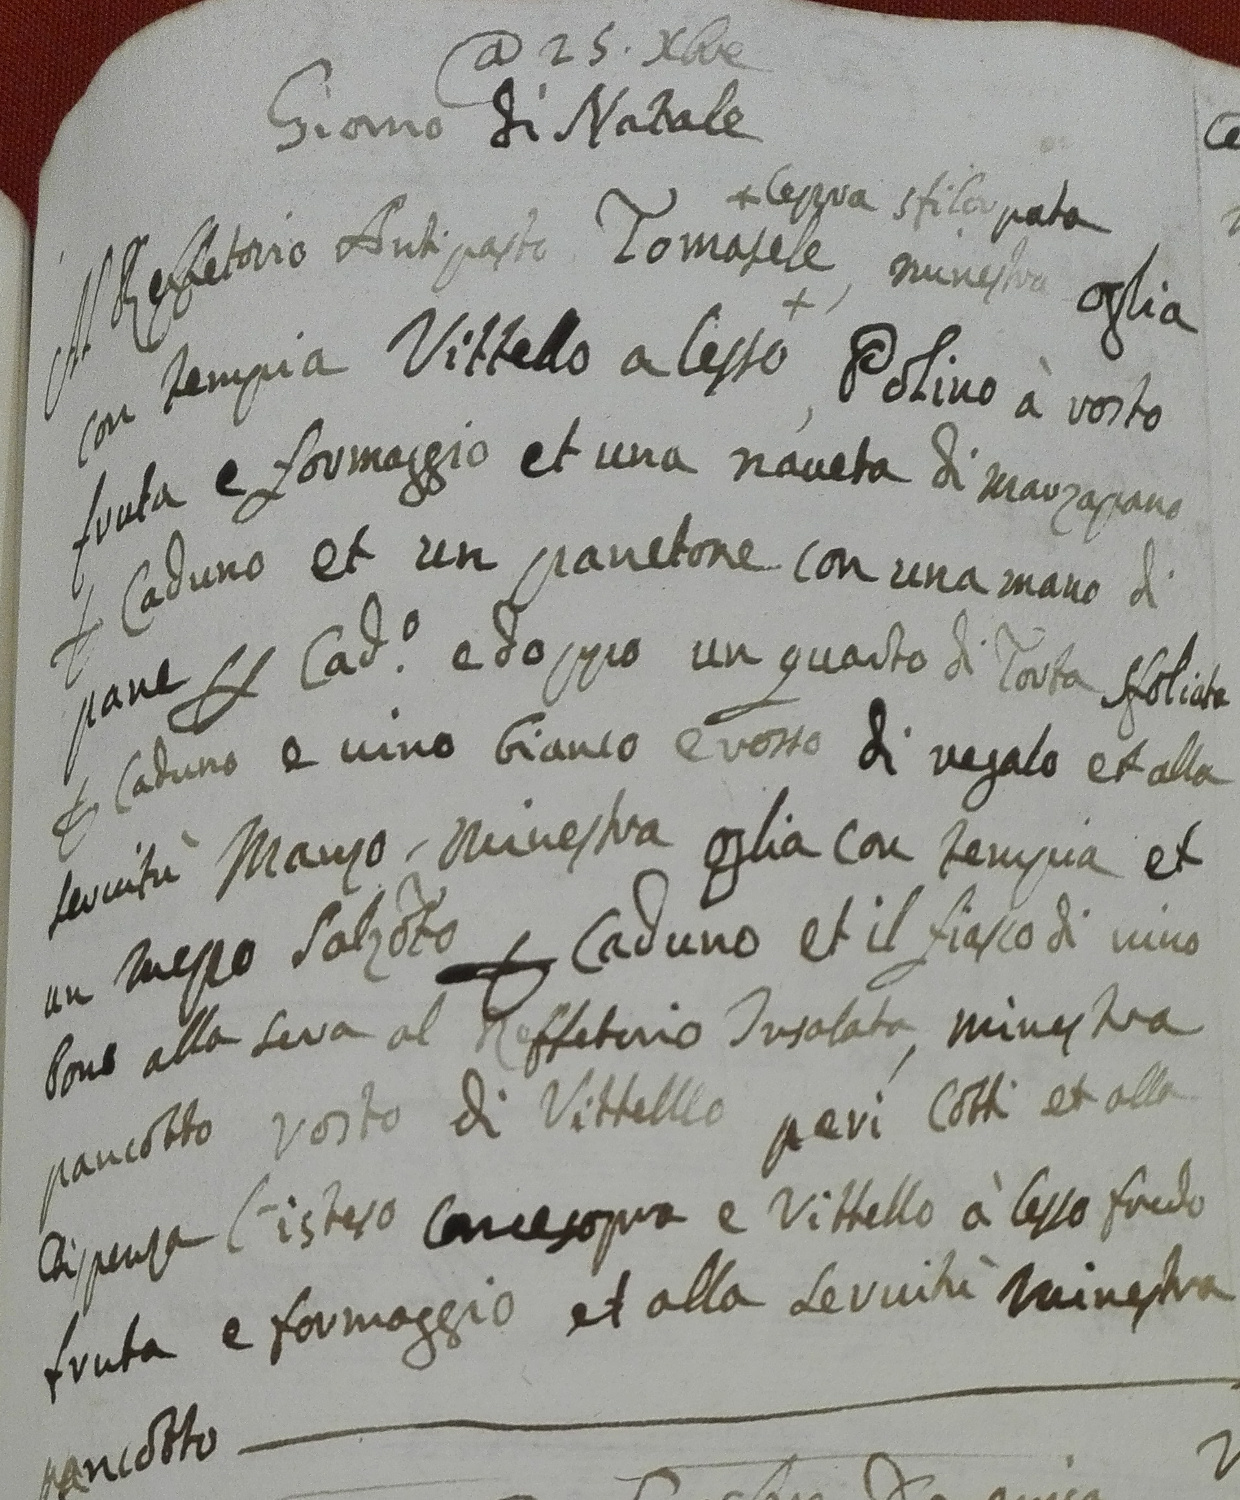 @ 25. Xbre
Giorno di Natale
+ lepra stilorpata
Al Reffetorio Antipasto Tomasele, minestra oglia
con tempia Vittello a lesso +, Polino à rosto
fruta e formaggio et una naveta di marzapano
per Caduno et un panetone con una mano di
pane per Cad.º e doppo un quarto di Torta sfoliata
per Caduno e uino bianco e rosso di regalo et alla
seruitù Manzo, Minestra oglia con tempia et
un mezzo Salzòto per Caduno et il fiasco di uino
bono alla sera al Reffetorio Insalata, minestra
pancòtto rosto di Vittelllo peri Cotti et alla
dispenza l'isteso comesopra e Vittello à lesso fredo
fruta e formaggio et alla seruitù Minestra
pancòtto